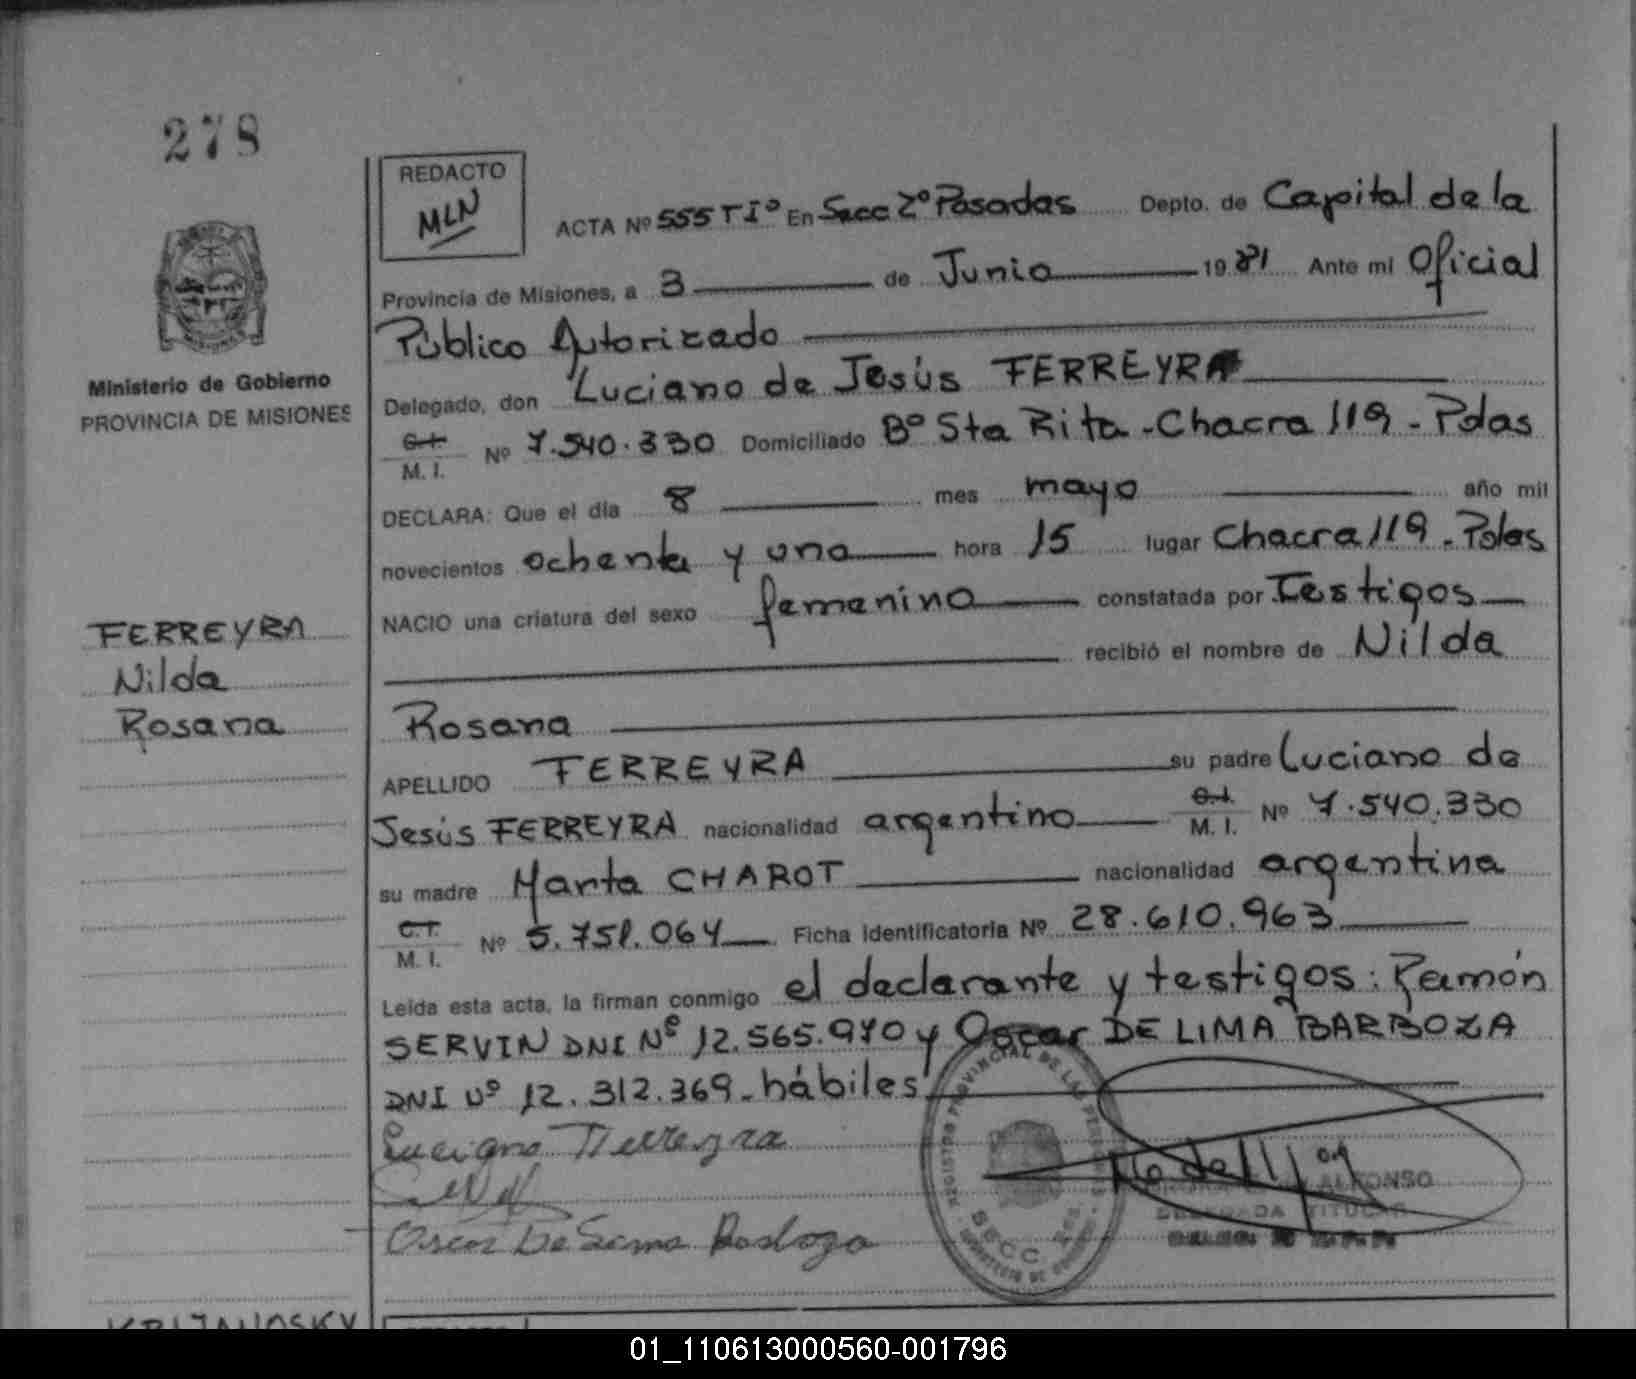 278
REDACTO
MLN
ACTA Nº 555 T Iº En Secc 2º Posadas Depto. de Capital de la
Provincia de Misiones, a 3 de Junio 19 81 Ante mi Oficial
Público Autorizado
Ministerio de Gobierno
PROVINCIA DE MISIONES
Delegado, don Luciano de Jesús FERREYRA
C.I.
M. I. Nº 7.540.330 Domiciliado Bº Sta Rita - Chacra 119 - Pdas
DECLARA: Que el día 8 mes mayo año mil
novecientos ochenta y uno hora 15 lugar Chacra 119 - Pdas
NACIO una criatura del sexo femenino constatada por Testigos
recibió el nombre de Nilda
FERREYRA
Nilda
Rosana
Rosana
APELLIDO FERREYRA su padre Luciano de
Jesús FERREYRA nacionalidad argentino C.I. M. I. Nº 7.540.330
su madre Marta CHAROT nacionalidad argentina
C.I.
M. I. Nº 5.751.064 Ficha identificatoria Nº 28.610.963
Leída esta acta, la firman conmigo el declarante y testigos: Ramón
SERVIN DNI Nº 12.565.970 y Oscar DE LIMA BARBOZA
DNI Nº 12.312.369 - hábiles
Luciano Ferreyra
Oscar De Lima Barboza
REGISTRO PROVINCIAL DE LAS PERSONAS
SECC.
ALFONSO
DELEGADA TITULAR
KRIJANOSKY
REDACTO
01_110613000560-001796